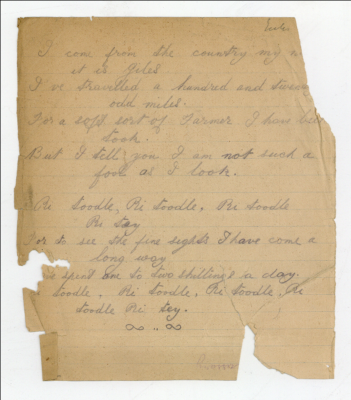 I come from the country my n
it is Giles
I've travelled a hundred and twen
odd miles.
For a soft sort of Farmer I have be
took.
But I tell you I am not such a
fool as I look.
Ri toodle, Ri toodle, Ri toodle
Ri tay
For to see the fine sights I have come a
long way
spent one to two shilling's a day.
toodle, Ri toodle, Ri toodle, Ri
toodle Ri tay.